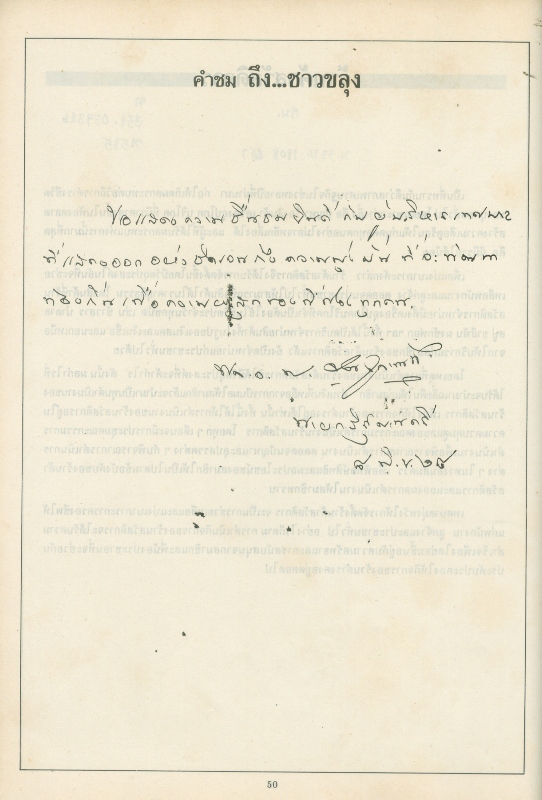 คำชม ถึง...ชาวขลุง
ขอแสดงความชื่นชมยินดี กับผู้บริหารเทศบาล
ที่แสดงออกอย่างชัดเจนถึงความมุ่งมั่น ที่จะพัฒนา
ท้องถิ่น เพื่อความผาสุกของพี่น้องทุกคน
พล.อ. ป.
นายกรัฐมนตรี
๘ มิ.ย. ๒๘
50